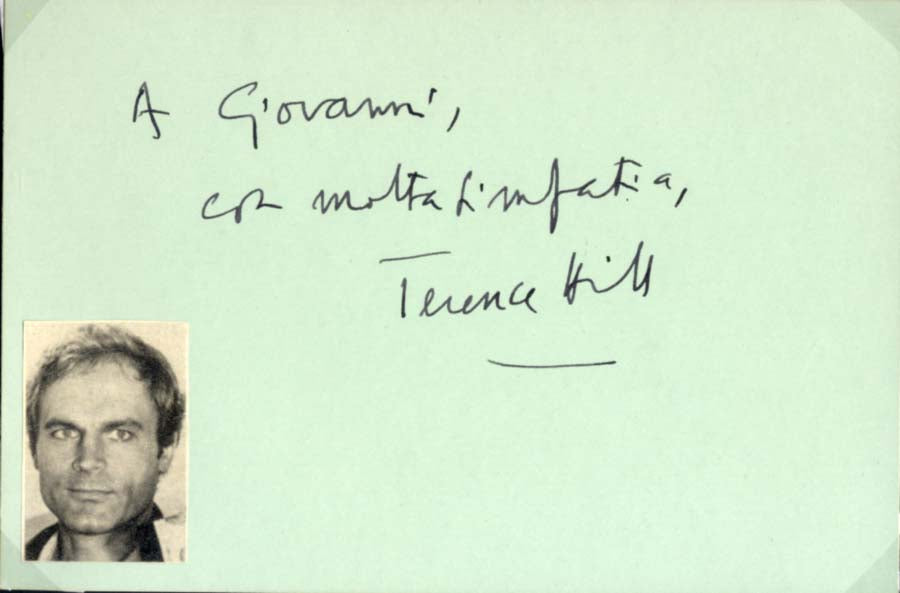 A Giovanni,
con molta simpatia,
Terence Hill